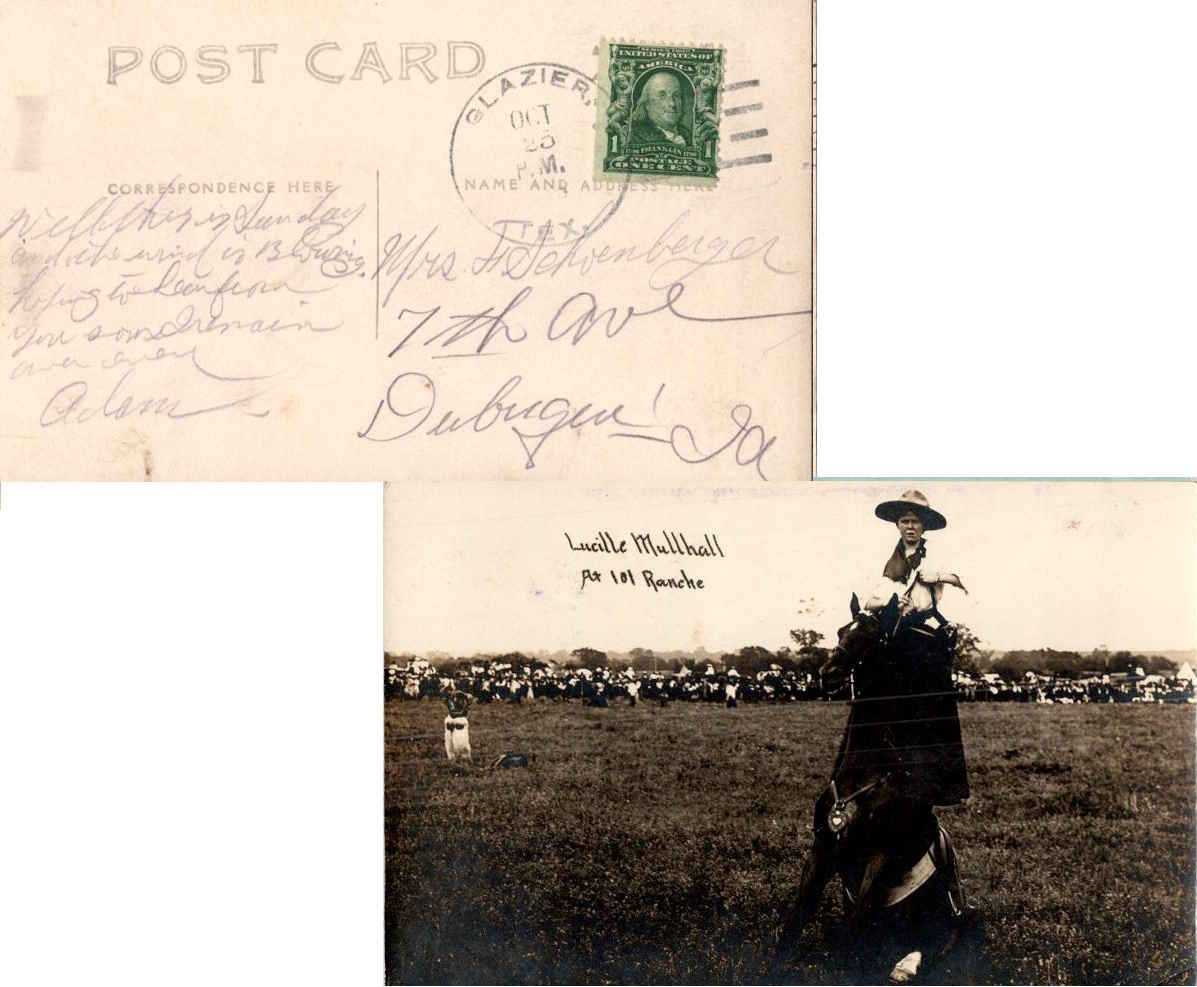 POST CARD
GLAZIER,
OCT
25
P.M.
TEX.
SERIES 1902
UNITED STATES OF
AMERICA
1 1706 FRANKLIN 1790 1
POSTAGE
ONE CENT
CORRESPONDENCE HERE
NAME AND ADDRESS HERE
Well this is Sunday
and the wind is Blowing.
hoping to hear from
you soon I remain
Adam
Mrs. H Schoenberger
7th Ave
Dubuque
Ia
Lucille Mullhall
At 101 Ranche